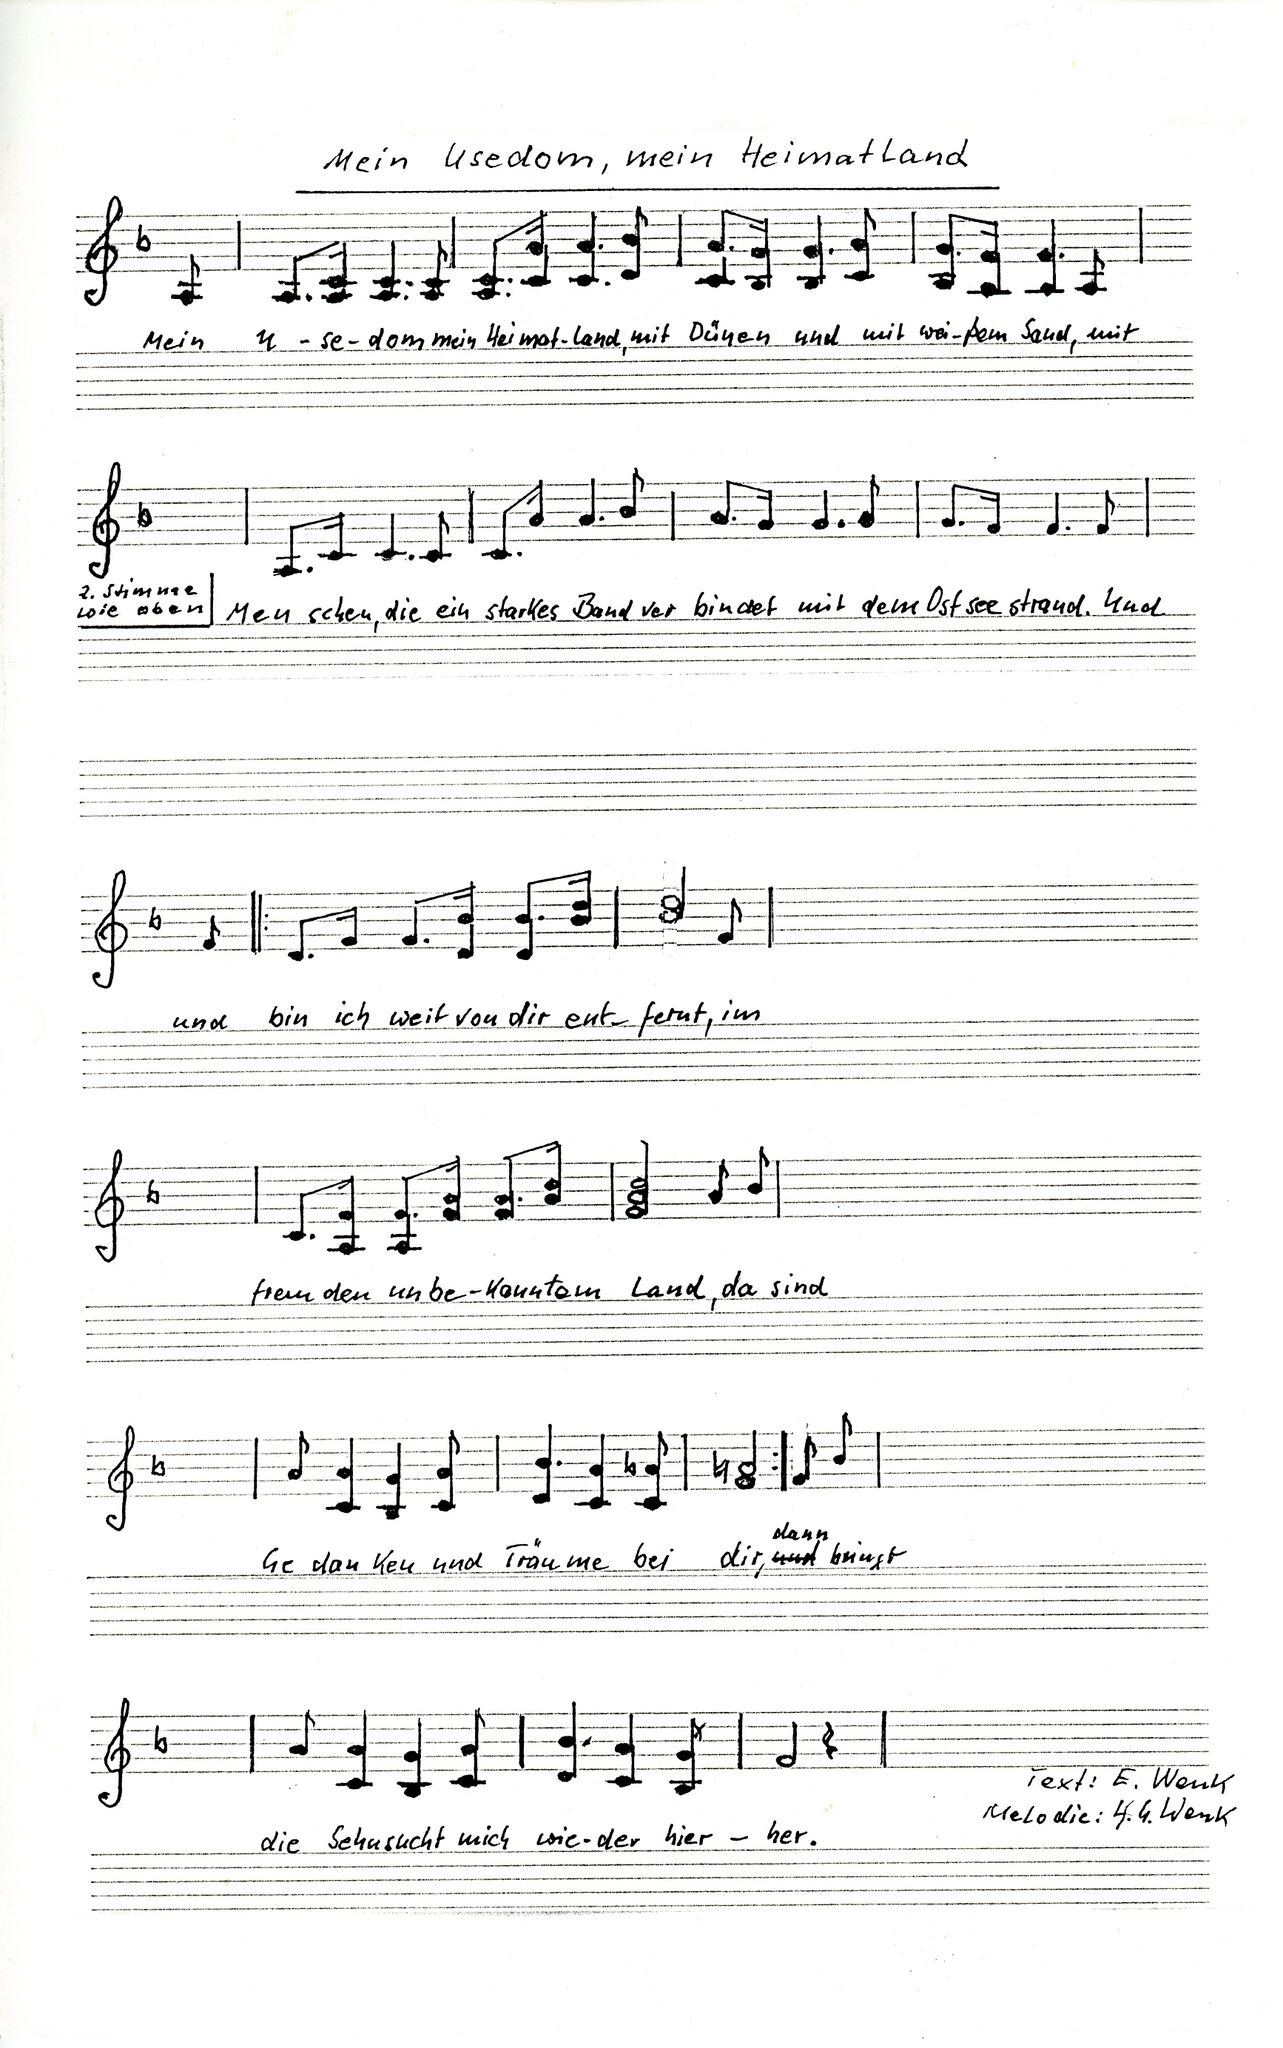 Mein Usedom, mein Heimatland
Mein U - se - dom mein Heimat-land, mit Dünen und mit wei-ßem Sand, mit
2. Stimme
wie oben
Men schen, die ein starkes Band ver bindet mit dem Ost see strand. Und
und bin ich weit von dir ent- fernt, im
frem den unbe-kanntem Land, da sind
dann
Ge dan ken und Träu me bei dir, und bringt
die Sehnsucht mich wie-der hier - her.
Text: E. Wenk
Melodie: H.G. Wenk